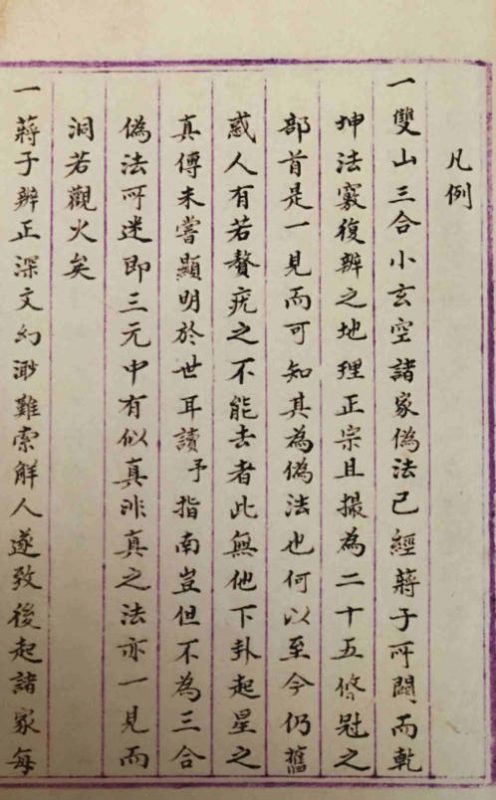 凡例
一雙山三合小玄空諸家偽法已經蔣子所闢而乾
坤法竅復辨之地理正宗且撮為二十五條冠之
部首是一見而可知其為偽法也何以至今仍舊
惑人有若贅疣之不能去者此無他下卦起星之
真傳未嘗顯明於世耳讀予指南豈但不為三合
偽法所迷即三元中有似真非真之法亦一見而
洞若觀火矣
一蔣子辨正深文幻渺難索解人遂致後起諸家每